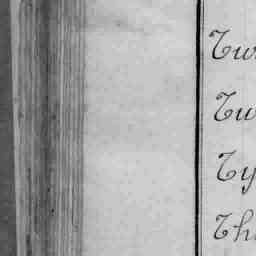 Tw
Tw
Ty
Th